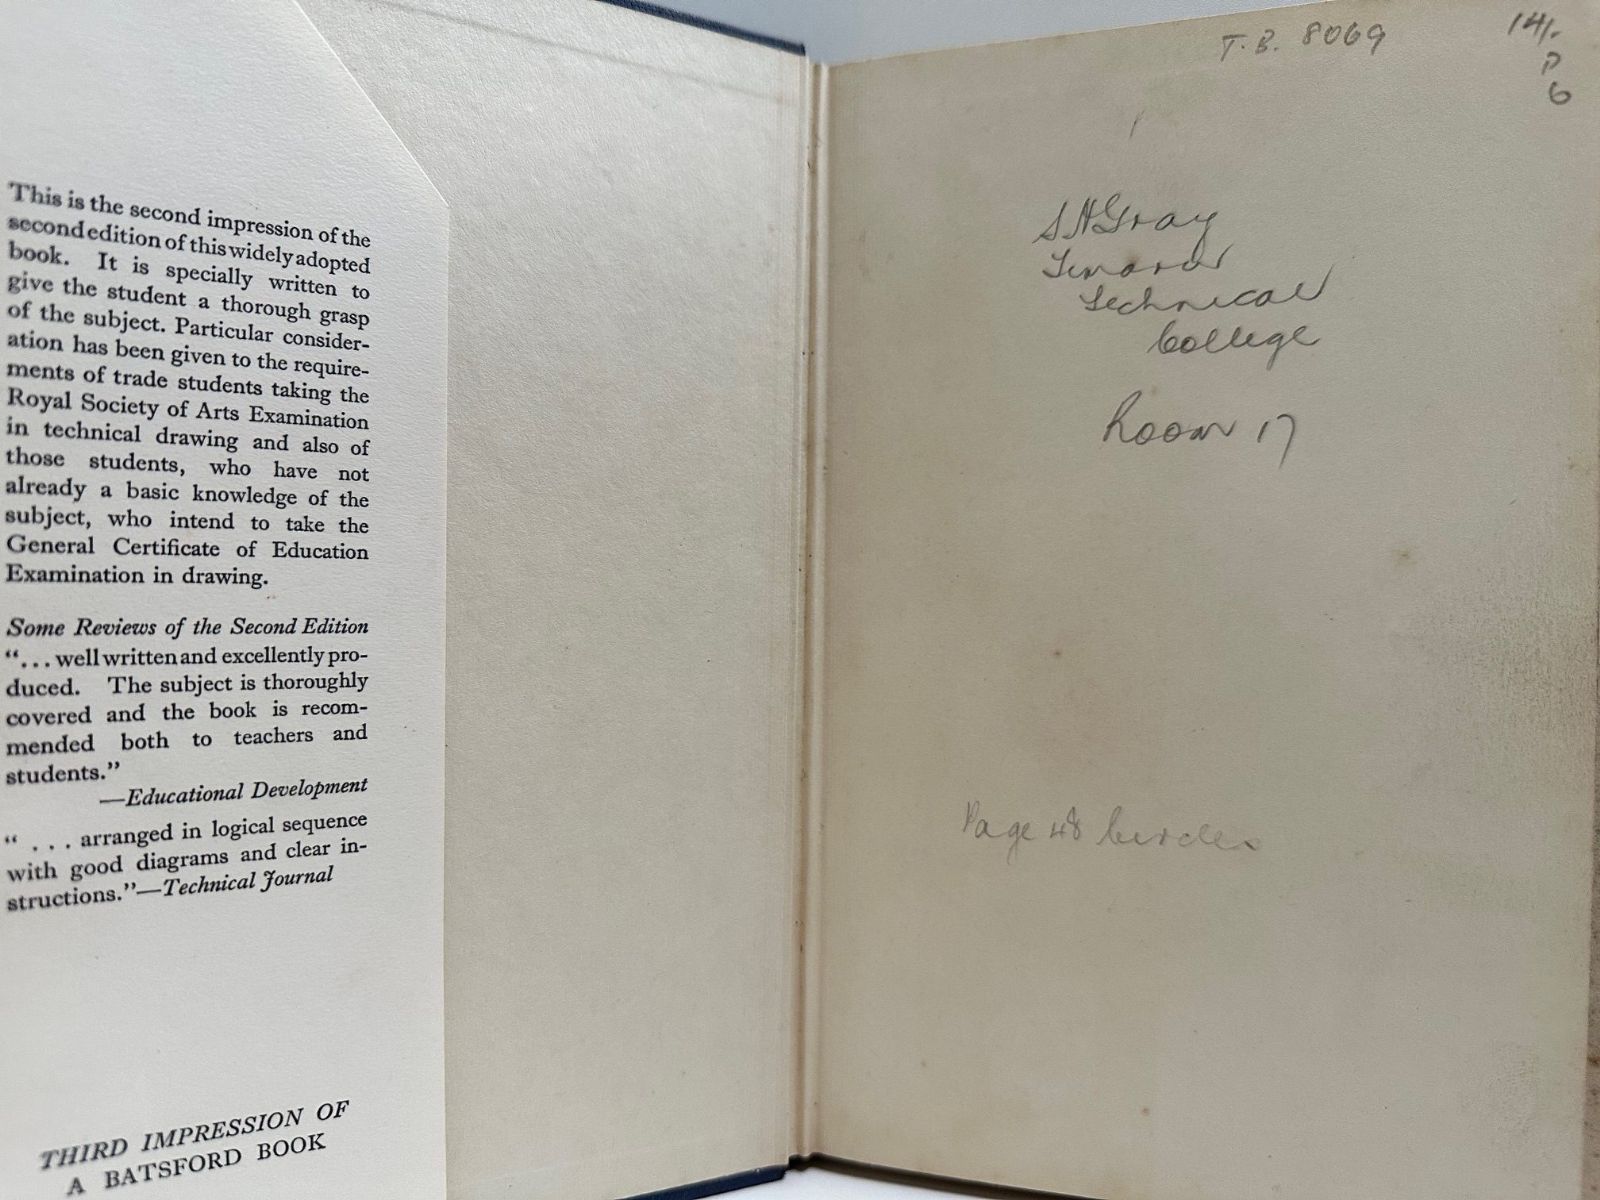 This is the second impression of the
second edition of this widely adopted
book. It is specially written to
give the student a thorough grasp
of the subject. Particular consider-
ation has been given to the require-
ments of trade students taking the
Royal Society of Arts Examination
in technical drawing and also of
those students, who have not
already a basic knowledge of the
subject, who intend to take the
General Certificate of Education
Examination in drawing.
Some Reviews of the Second Edition
“... well written and excellently pro-
duced. The subject is thoroughly
covered and the book is recom-
mended both to teachers and
students.”
—Educational Development
“ . . . arranged in logical sequence
with good diagrams and clear in-
structions.”—Technical Journal
THIRD IMPRESSION OF
A BATSFORD BOOK
T.B. 8069
14/-
P
6
S H Gray
Technical
College
Room 17
Page 48 Circles